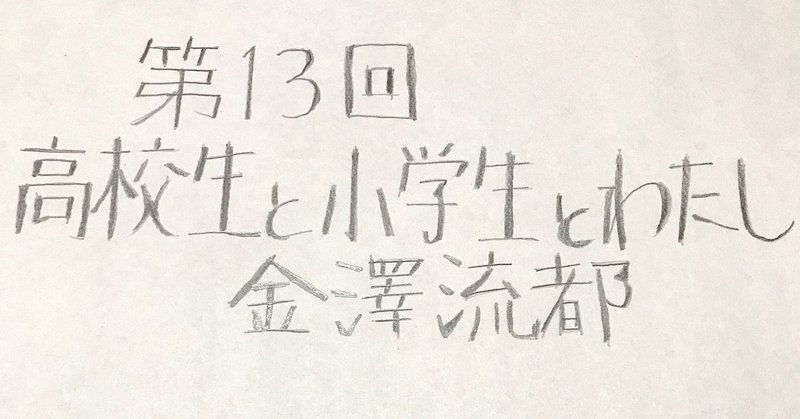 第13回
高校生と小学生とわたし
金澤流都